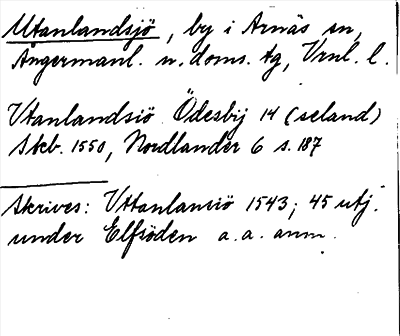 Utanlandsjö, by i Arnäs sn,
Ångermanl. n. doms. tg, Vrnl. l.
Vtanlandsiö Ödesbij 14 (seland)
Skb. 1550, Nordlander 6 s. 187
Skrives: Vttanlansiö 1543; 45 utj.
under Elfsöden a.a. anm.